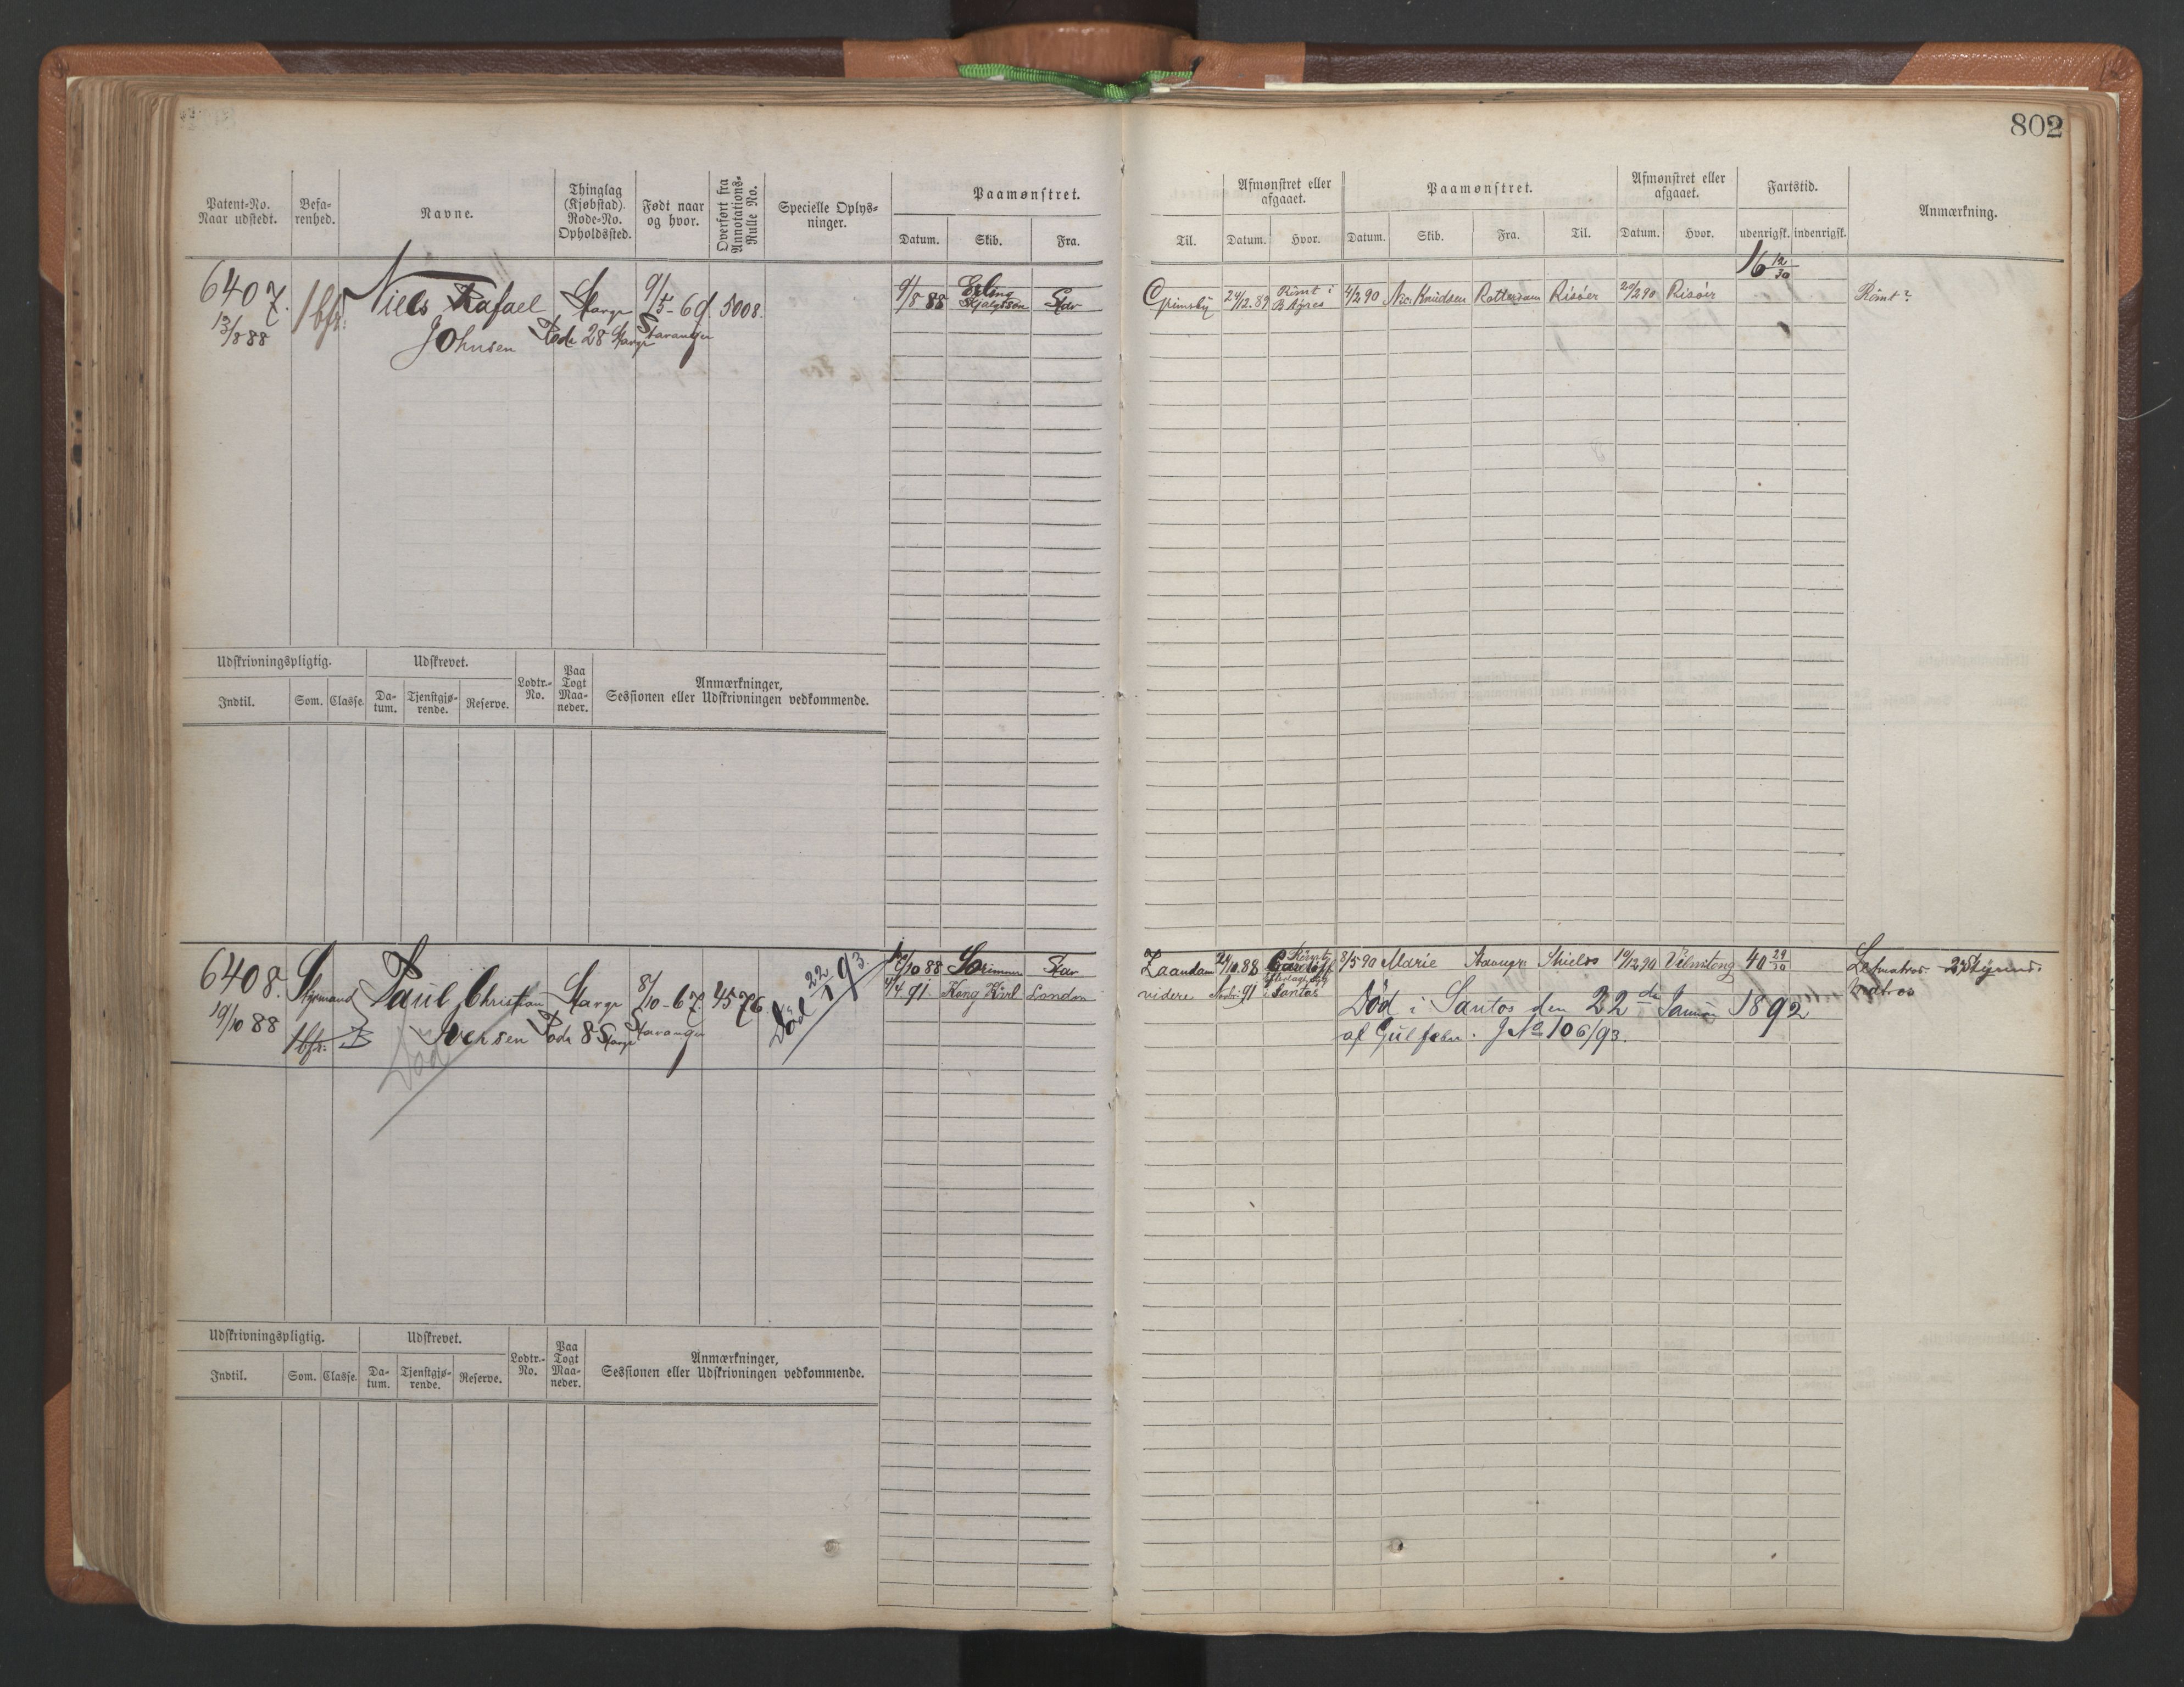 802
Patent-No. Naar udstedt. Befarenhed. Navne. Thinglag (Kjøbstad). Rode-No. Opholdssted. Født naar og hvor. Overført fra Annotations-Rulle No. Specielle Oplysninger. Paamønstret. Datum. Skib. Fra.
Til. Afmønstret eller afgaaet. Datum. Hvor. Paamønstret. Datum. Skib. Fra. Til. Afmønstret eller afgaaet. Datum. Hvor. Fartstid. udenrigsk. indenrigsk. Anmærkning.
6407. 1bfr. Niels Rafael 9/5-69. 5008. 9/8 88 Erling Skjalgsson Stav
13/8 88 Johnsen Rode 28 Stavanger
16 12/30
Grimsby 24/12.89 Römt i B Ayres 4/2 90 Nic. Knudsen Rotterdam Risöer 20/2 90 Risöer Römt?
Udskrivningspligtig. Udskrevet. Lodtr.-No. Paa Togt Maaneder. Anmærkninger, Sessionen eller Udskrivningen vedkommende.
Indtil. Som. Classe. Datum. Tjenstgjørende. Reserve.
6408. Styrmand Paul Christian 8/10-67. 4576. Död 22/1 93. 10/10 88 Stav
19/10 88 1bfr. B Iversen Rode 8 Stavanger 4/4 91. Kong Carl London
Död
Zaandam 24/10.88 8/5 90 Marie Shields 19/12 90 40 29/30 Letmatros
videre 91 i Santos Matros
Död i Santos den 22de Januar 1892
af Gulfeber. J No 106/93.
Udskrivningspligtig. Udskrevet. Lodtr.-No. Paa Togt Maaneder. Anmærkninger, Sessionen eller Udskrivningen vedkommende.
Indtil. Som. Classe. Datum. Tjenstgjørende. Reserve.